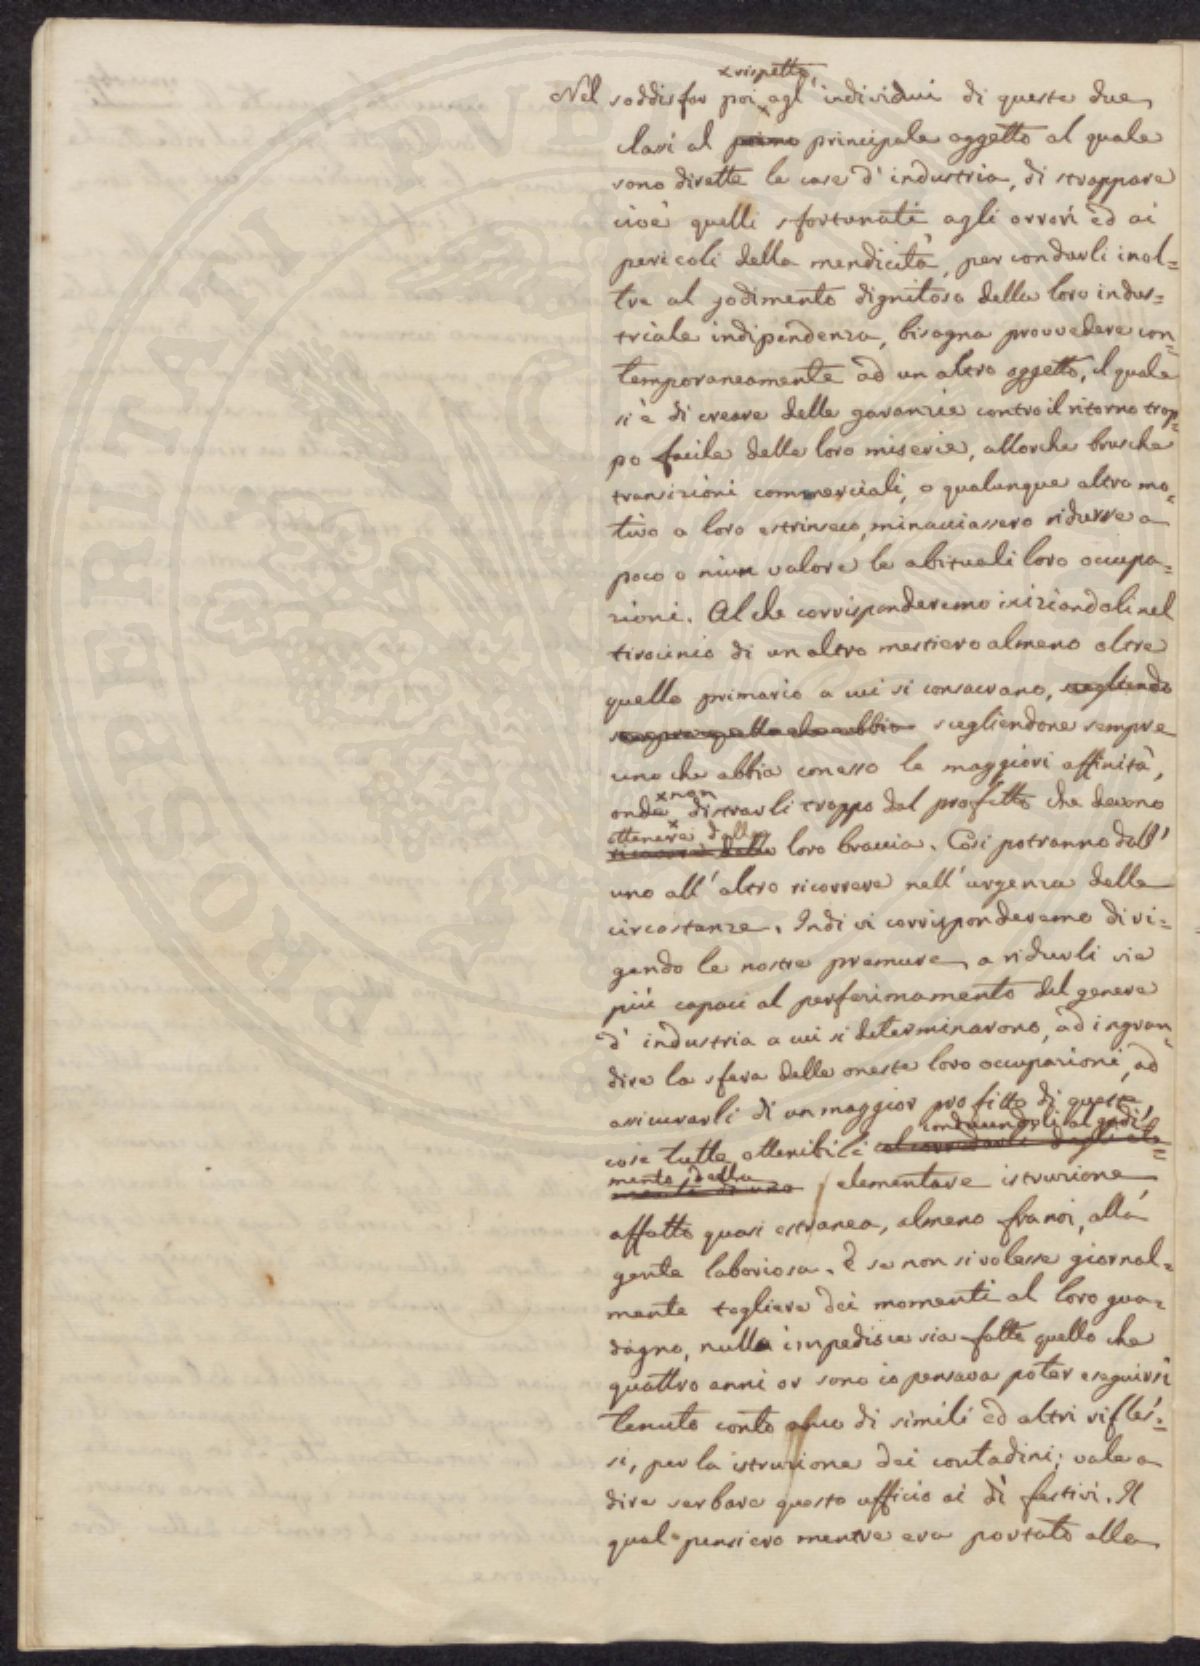 x rispetto
Nel soddisfar poi x agl' individui di queste due
classi al primo principale oggetto al quale
sono dirette le case d' industria, di strappare
cioè quelli sfortunati agli orrori ed ai
pericoli della mendicità, per condurli inol=
tre al godimento dignitoso della loro indus=
triale indipendenza, bisogna provvedere con=
temporaneamente ad un altro oggetto, il quale
si è di creare delle garanzie contro il ritorno trop=
po facile delle loro miserie, allorché brusche
transizioni commerciali, o qualunque altro mo=
tivo a loro estrinseco, minacciassero ridurre a
poco o niun valore le abituali loro occupa=
zioni. Al che corrisponderemo iniziandoli nel
tirocinio di un altro mestiero almeno oltre
quello primario a cui si consacrano, scegliendo
sempre quello che abbia scegliendone sempre
uno che abbia con esso le maggiori affinità,
x non
onde x distrarli troppo dal profitto che devono
ottenere dalle
ricavare dalle loro braccia. Così potranno dall'
uno all' altro ricorrere nell' urgenza delle
circostanze. Indi vi corrisponderemo diri=
gendo le nostre premure a ridurli vie
più capaci al perfezionamento del genere
d' industria a cui si determinarono, ad ingran=
dire la sfera delle oneste loro occupazioni, ad
assicurarli di un maggior profitto di queste,
conducendoli al godi
cose tutte ottenibili col corredarli degli ele=
mento della
menti di una elementare istruzione
affatto quasi estranea, almeno fra noi, alla
gente laboriosa. E se non si volesse giornal=
mente togliere dei momenti al loro gua=
dagno, nulla impedisce sia fatto quello che
quattro anni or sono io pensava poter eseguirsi
tenuto conto anco di simili ed altri rifles=
si, per la istruzione dei contadini; vale a
dire serbare questo ufficio ai dì festivi. Il
qual pensiero mentre era portato alla